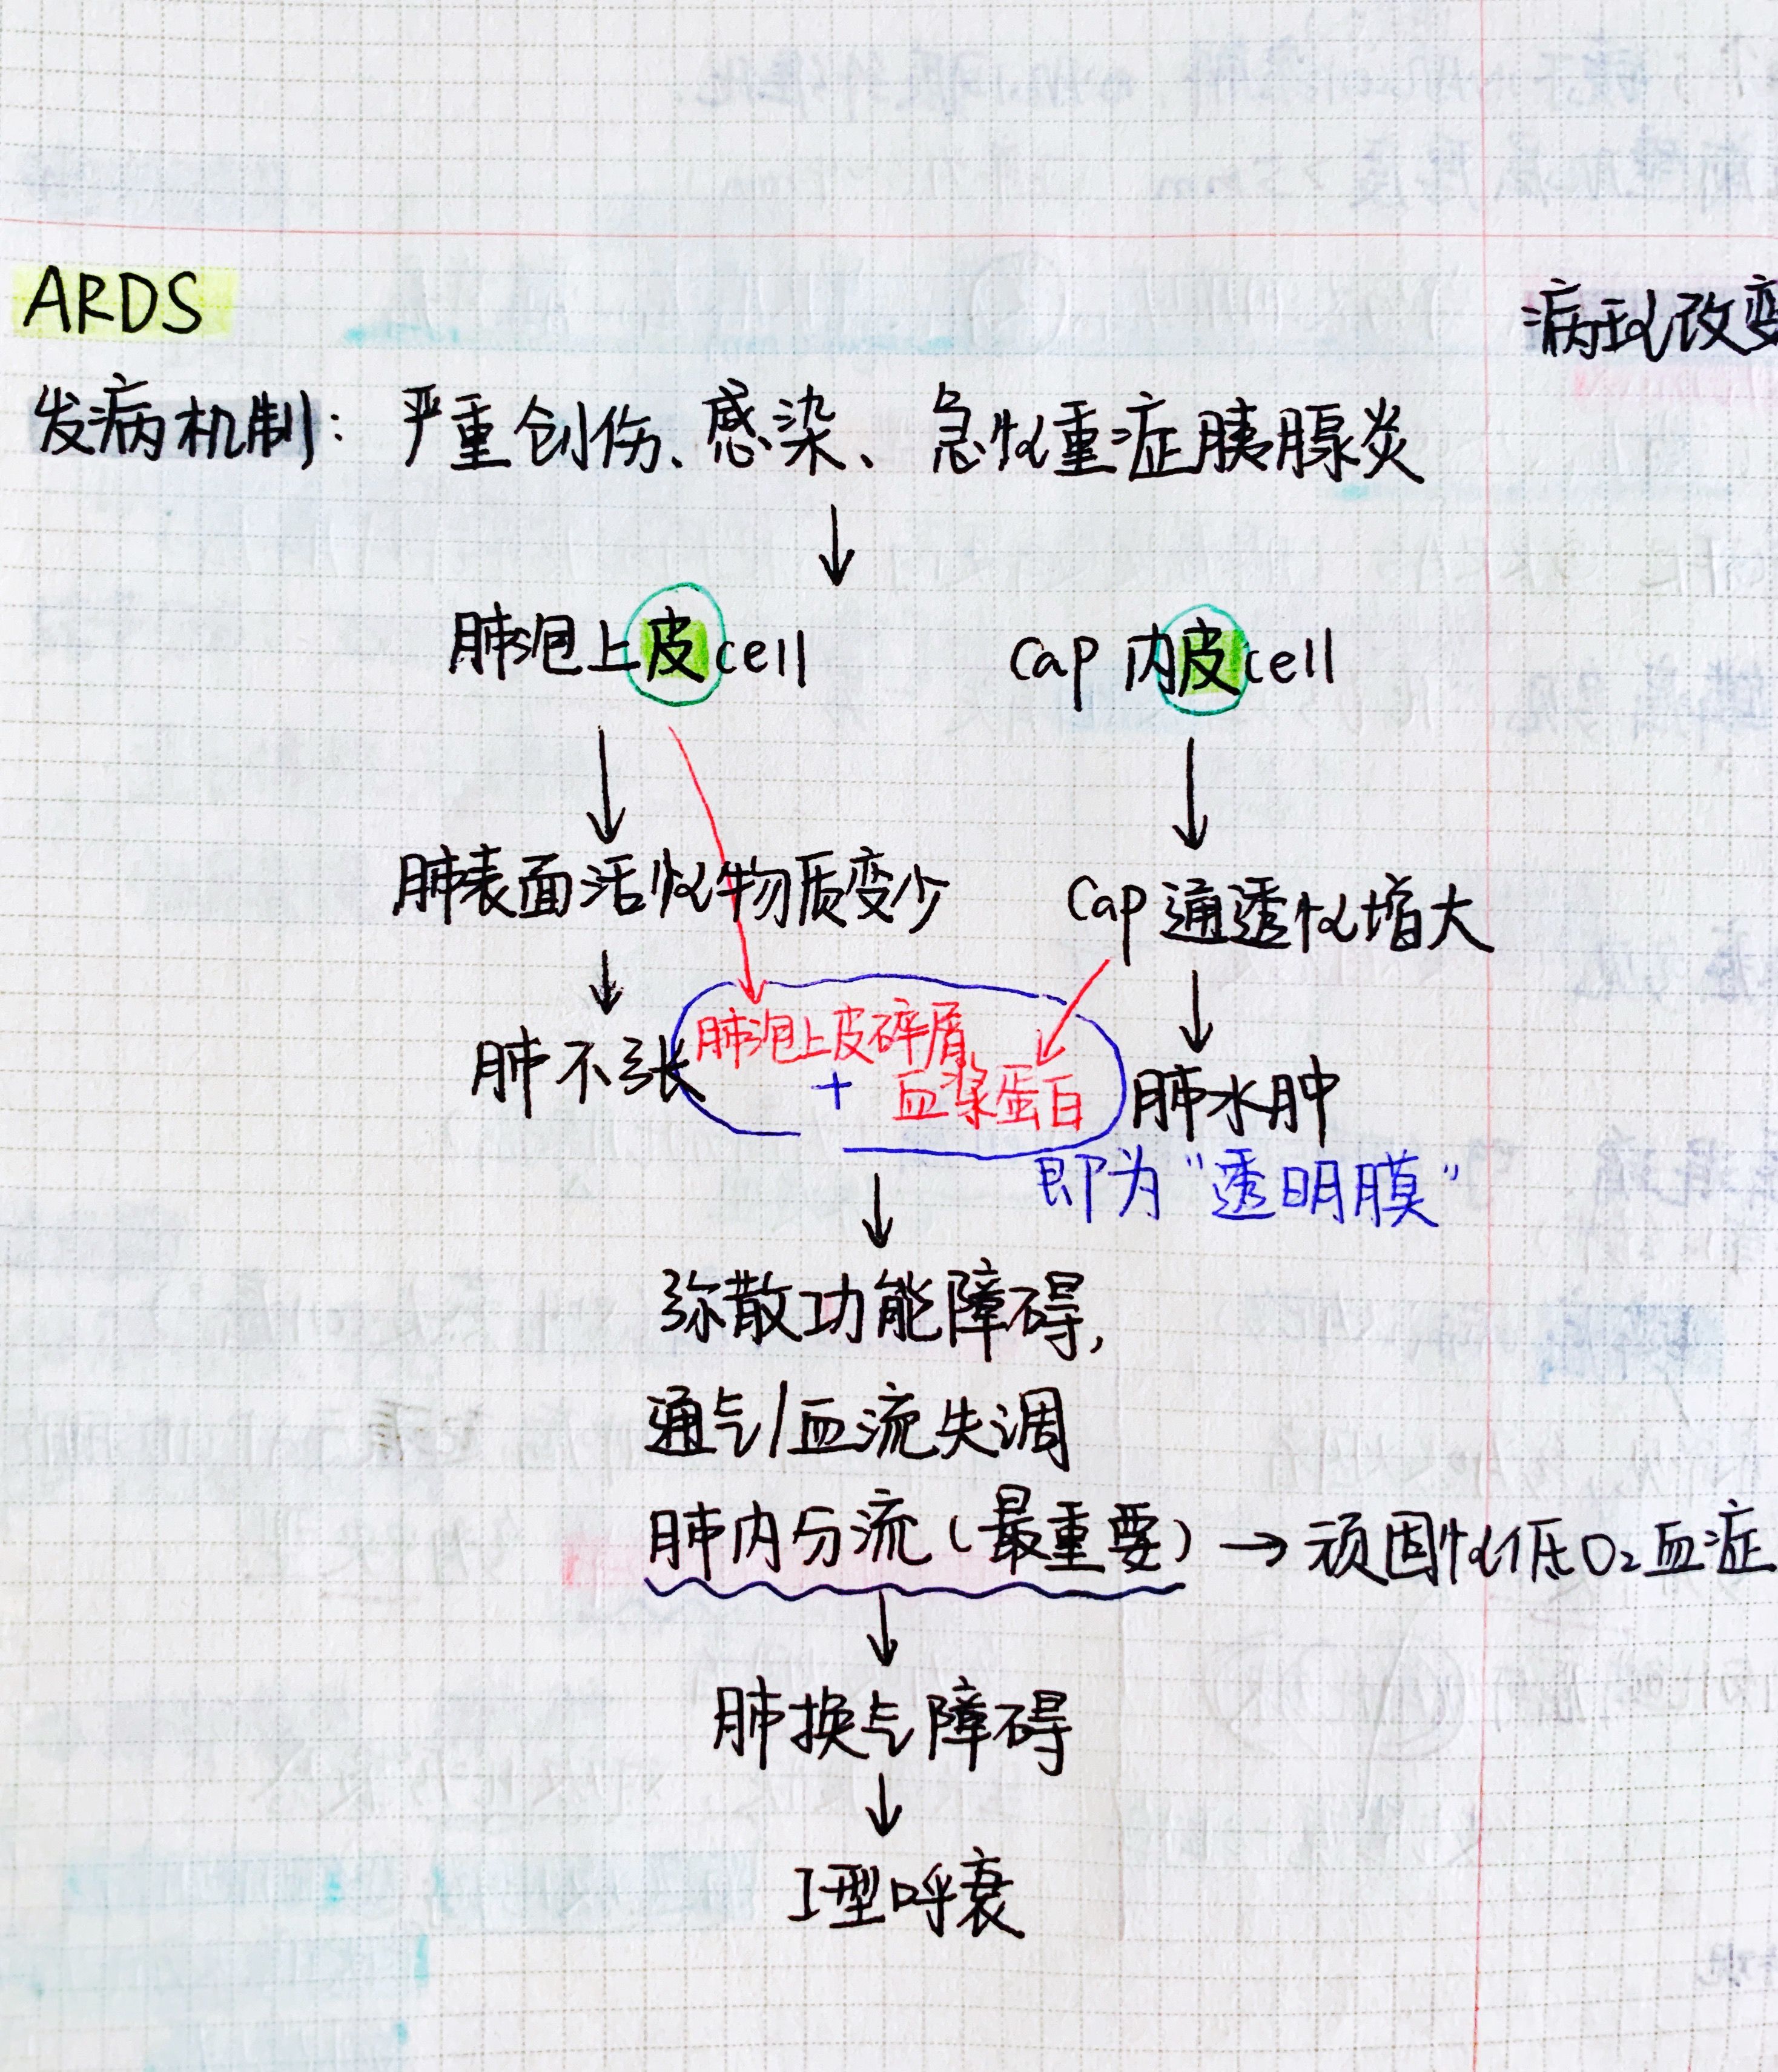 ARDS
病理改变
发病机制：严重创伤、感染、急性重症胰腺炎
肺泡上皮cell
cap 内皮cell
肺表面活性物质变少
cap通透性增大
肺不张
肺泡上皮碎屑
+ 血浆蛋白
肺水肿
即为“透明膜”
弥散功能障碍,
通气/血流失调
肺内分流(最重要) → 顽固性低O₂血症
肺换气障碍
I型呼衰